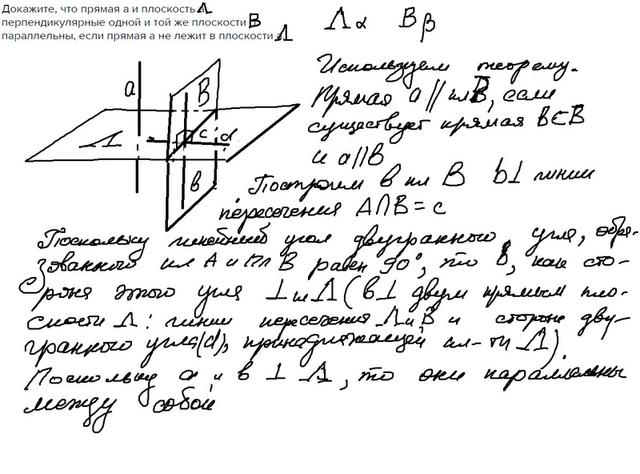 Докажите, что прямая a и плоскость Λ
перпендикулярные одной и той же плоскости B
параллельны, если прямая a не лежит в плоскости Λ
Λ α B β
Используем теорему.
Прямая a // пл B, если
существует прямая B∈B
и a//B
Построим в пл B b⊥ линии
пересечения A∩B = c
Поскольку линейный угол двугранного угла, обра-
зованного пл A и пл B равен 90°, то B, как сто-
рона этого угла ⊥ пл Λ (в ⊥ двум прямым пло-
скости Λ: линии пересечения Λ и B и стороне дву-
гранного угла(d), принадлежащей пл-ти Λ).
Поскольку a и в ⊥ Λ, то они параллельны
между собой
a
B
Λ
c
d
в